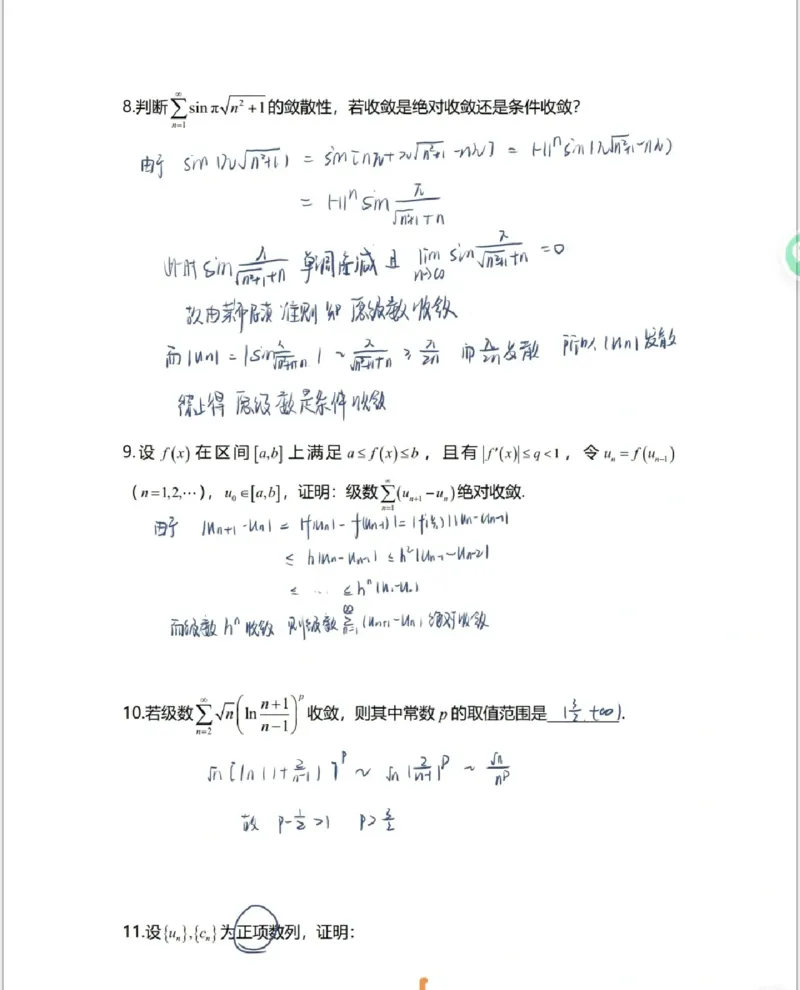 8.判断∑_{n=1}^{∞} sin π√(n²+1)的敛散性，若收敛是绝对收敛还是条件收敛？
由于 sin(π√(n²+1)) = sin[nπ+π√(n²+1)-nπ] = (-1)^n sin(π√(n²+1)-nπ)
= (-1)^n sin π/(√(n²+1)+n)
此时 sin π/(√(n²+1)+n) 单调递减 且 lim_{n→∞} sin π/(√(n²+1)+n) = 0
故由莱布尼茨准则知原级数收敛
而|un| = |sin π/(√(n²+1)+n)| ~ π/(√(n²+1)+n) ≥ π/2n 而 π/2n 发散 所以|un|发散
综上得 原级数是条件收敛
9.设 f(x) 在区间[a,b]上满足 a≤f(x)≤b，且有|f′(x)|≤q<1，令 u_n=f(u_{n-1})
（n=1,2,⋯），u_0∈[a,b]，证明：级数∑_{n=1}^{∞}(u_{n+1}-u_n)绝对收敛.
由于 |un+1-un| = |f(un)-f(un-1)| = |f'(ξ)||un-un-1|
≤ h|un-un-1| ≤ h²|un-1-un-2|
≤ ... ≤ h^n|u1-u0|
而级数 h^n 收敛 则级数 ∑_{n=1}^{∞}(un+1-un)绝对收敛
10.若级数∑_{n=2}^{∞} √n (ln (n+1)/(n-1))^p 收敛，则其中常数 p 的取值范围是 (3/2, +∞).
√n [ln(1+2/(n-1))]^p ~ √n (2/(n-1))^p ~ √n/n^p
故 p-1/2>1 p>3/2
11.设{u_n},{c_n}为正项数列，证明：